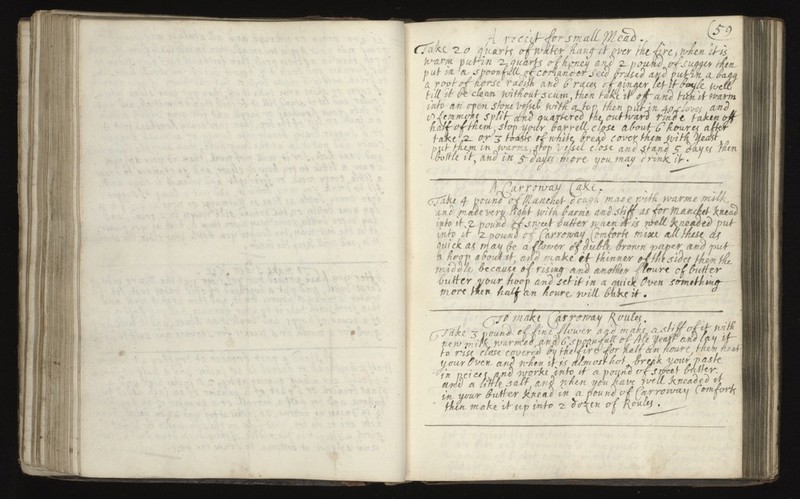 (59
A receit for small Mead.
Take 20 quarts of water hang it over the fire, when it is
warm put in 2 quarts of honey and 2 pound of sugger then
put in a spoonfull of coriander seed brused and put in a bagg
a root of horse radish and 6 races of ginger let it boyle well
till it be clean without scum, then take it off and tun it warm
into an open stone vessel with a top then put in 40 cloves and
Lemmons split and quartered the outward rinde taken off
half of them, stop your barrell close about 6 houres after
take 2 or 3 toasts of white bread cover them with yeast
put them in warme, stop vessel close and stand 5 dayes then
bottle it, and in 5 dayes more you may drink it.
A Carroway Cake.
Take 4 pound of Manchet dough made with warme milk
and made very light with barme and stiff as for manchet knead
into it 2 pound of sweet butter when it is well kneaded put
into it 2 pound of Carroway Comforts mixe all these as
quick as may be a flower of duble brown paper and put
a hoop about it, and make it thinner of the sides then the
middle because of rising and another floure of butter
butter your hoop and set it in a quick Oven something
more then half an houre will bake it.
To make Carroway Roules.
Take 3 pound of fine flower and make a stiff of it with
new milk warmed, and 6 spoonfull of Ale yeast and lay it
to rise close covered by the fire for half an houre then heat
your Oven and when it is almost hot, break your paste
in peices and worke into it a pound of sweet butter
and a little salt, and when you have well kneaded it
in your butter knead in a pound of Carroway Comforts
then make it up into 2 dozen of Roules.